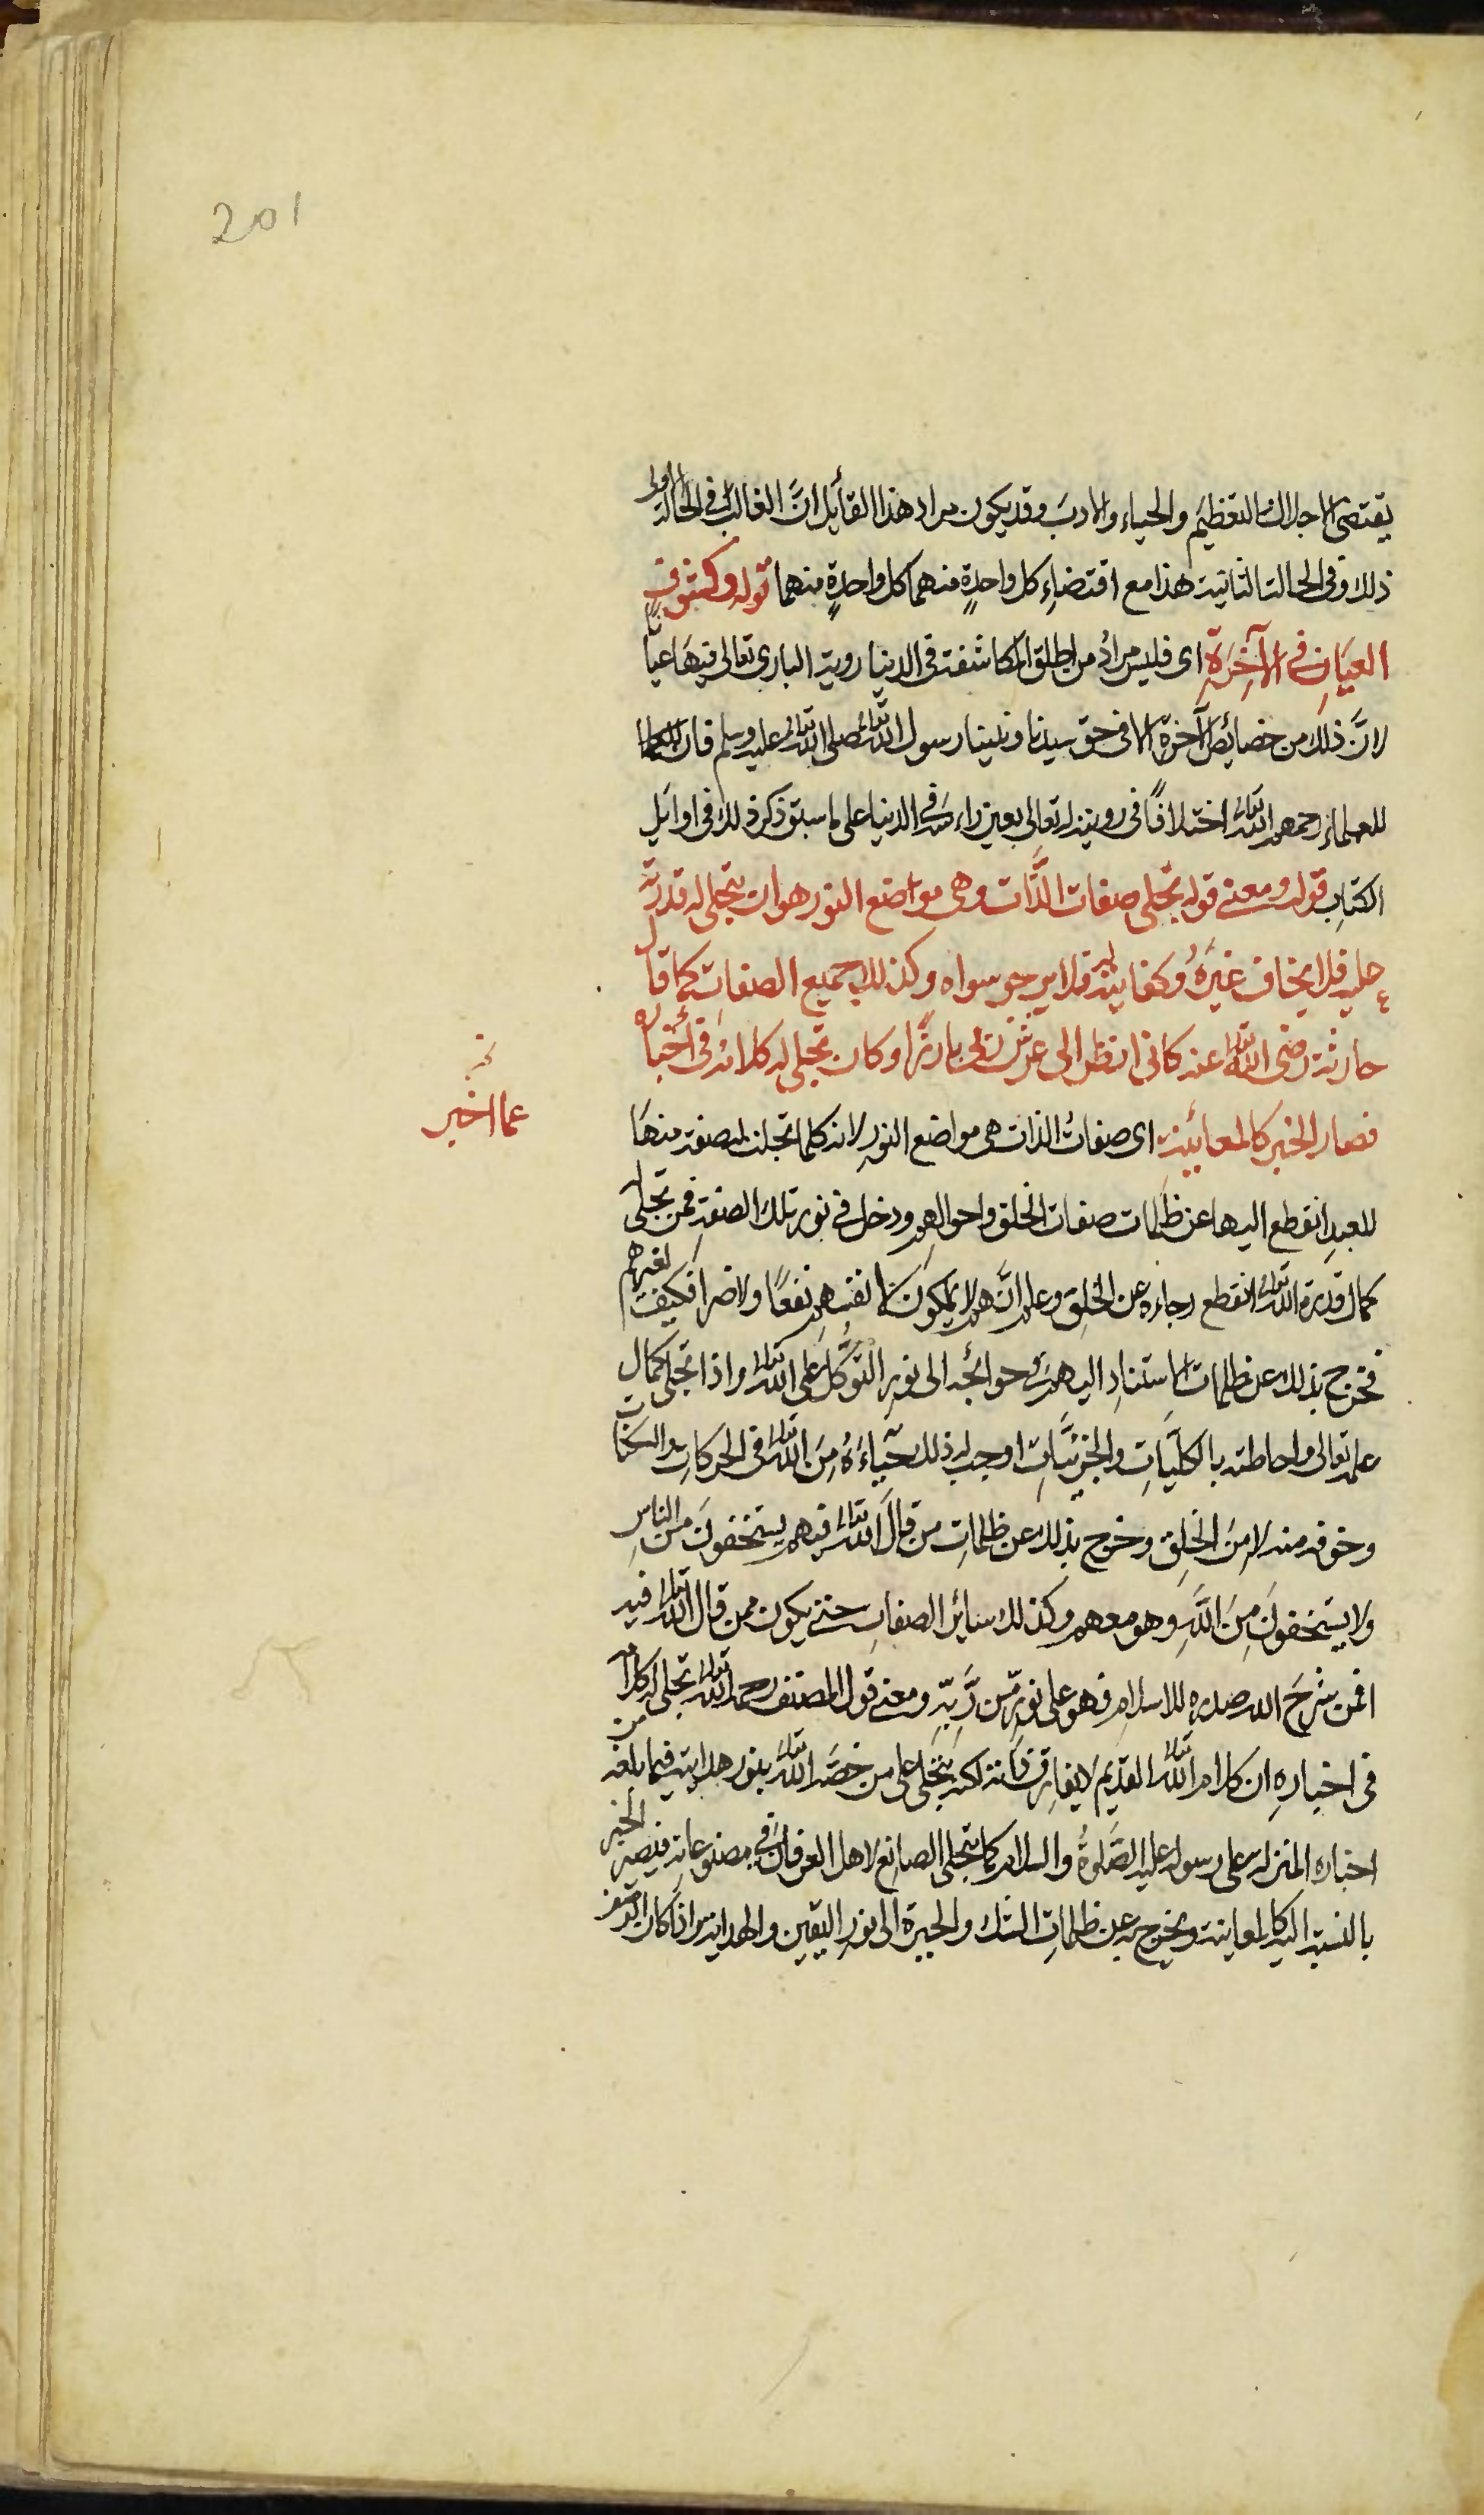 201
يقتضى الاجلال والتعظيم والحياء والادب وقد يكون مراد هذا القائل ان الغالب فى الحالة الاولى
ذلك وفى الحالة الثانية هذا مع اقتضاء كل واحدة منهما كل واحدة منهما قوله وكشوف
العيان فى الآخرة اى فليس مراد من اطلق المكاشفة فى الدنيا روية البارى تعالى فيها عيانا
لان ذلك من خصائص الآخرة الا فى حق سيدنا ونبينا رسول الله تعالى صلى الله تعالى عليه وسلم فان
للعلماء رحمهم الله تعالى اختلافا فى رويته له تعالى بعين راسه فى الدنيا على ما سبق ذكر ذلك فى اوايل
الكتاب قوله ومعنى قوله تجلى صفات الذات وهى مواضع النور هو ان يتجلى له قدرته
عليه فلا يخاف غيره وكفايته له فلا يرجو سواه وكذلك جميع الصفات كما قال
حارثة رضى الله تعالى عنه كانى انظر الى عرش ربى بارزا وكان تجلى له كلامه فى أخباره
فصار الخبر كالمعائينة اى صفات الذات هى مواضع النور لانه كلما تجلت له صفة منها
عما اخبر
للعبد انقطع اليها عن ظلمات صفات الخلق واحوالهم ودخل فى نور تلك الصفة فمن تجلى له
كمال قدرة الله تعالى انقطع رجاءه عن الخلق وعلم انهم لا يملكون لانفسهم نفعا ولا ضرا فكيف لغيرهم
فخرج بذلك عن ظلمات الاستناد اليهم فى حوائجه الى نور التوكل على الله تعالى واذا تجلى كمال
علمه تعالى واحاطته بالكليات والجزئيات اوجب له ذلك حياءه من الله تعالى فى الحركات والسكنات
وخوفه منه لا من الخلق وخرج بذلك عن ظلمات من قال الله تعالى فيهم يستخفون من الناس
ولا يستخفون من الله وهو معهم وكذلك سائر الصفات حتى يكون ممن قال الله تعالى فيه
افمن شرح الله صدره للاسلام فهو على نور من ربه ومعنى قول المصنف رحمه الله تعالى تجلى له كلامه
فى اخباره ان كلام الله تعالى القديم لا يفارق ذاته لكنه يتجلى على من خصه الله تعالى بنور هدايته فيما بلغه من
اخباره المنزلة على رسوله عليه الصلوة والسلام كما يتجلى الصانع لاهل العرفان فى مصنوعاته فيصير الخبر
بالنسبة اليه كالمعاينة ويخرج به عن ظلمات الشك والحيرة الى نور اليقين والهداية واذا كان